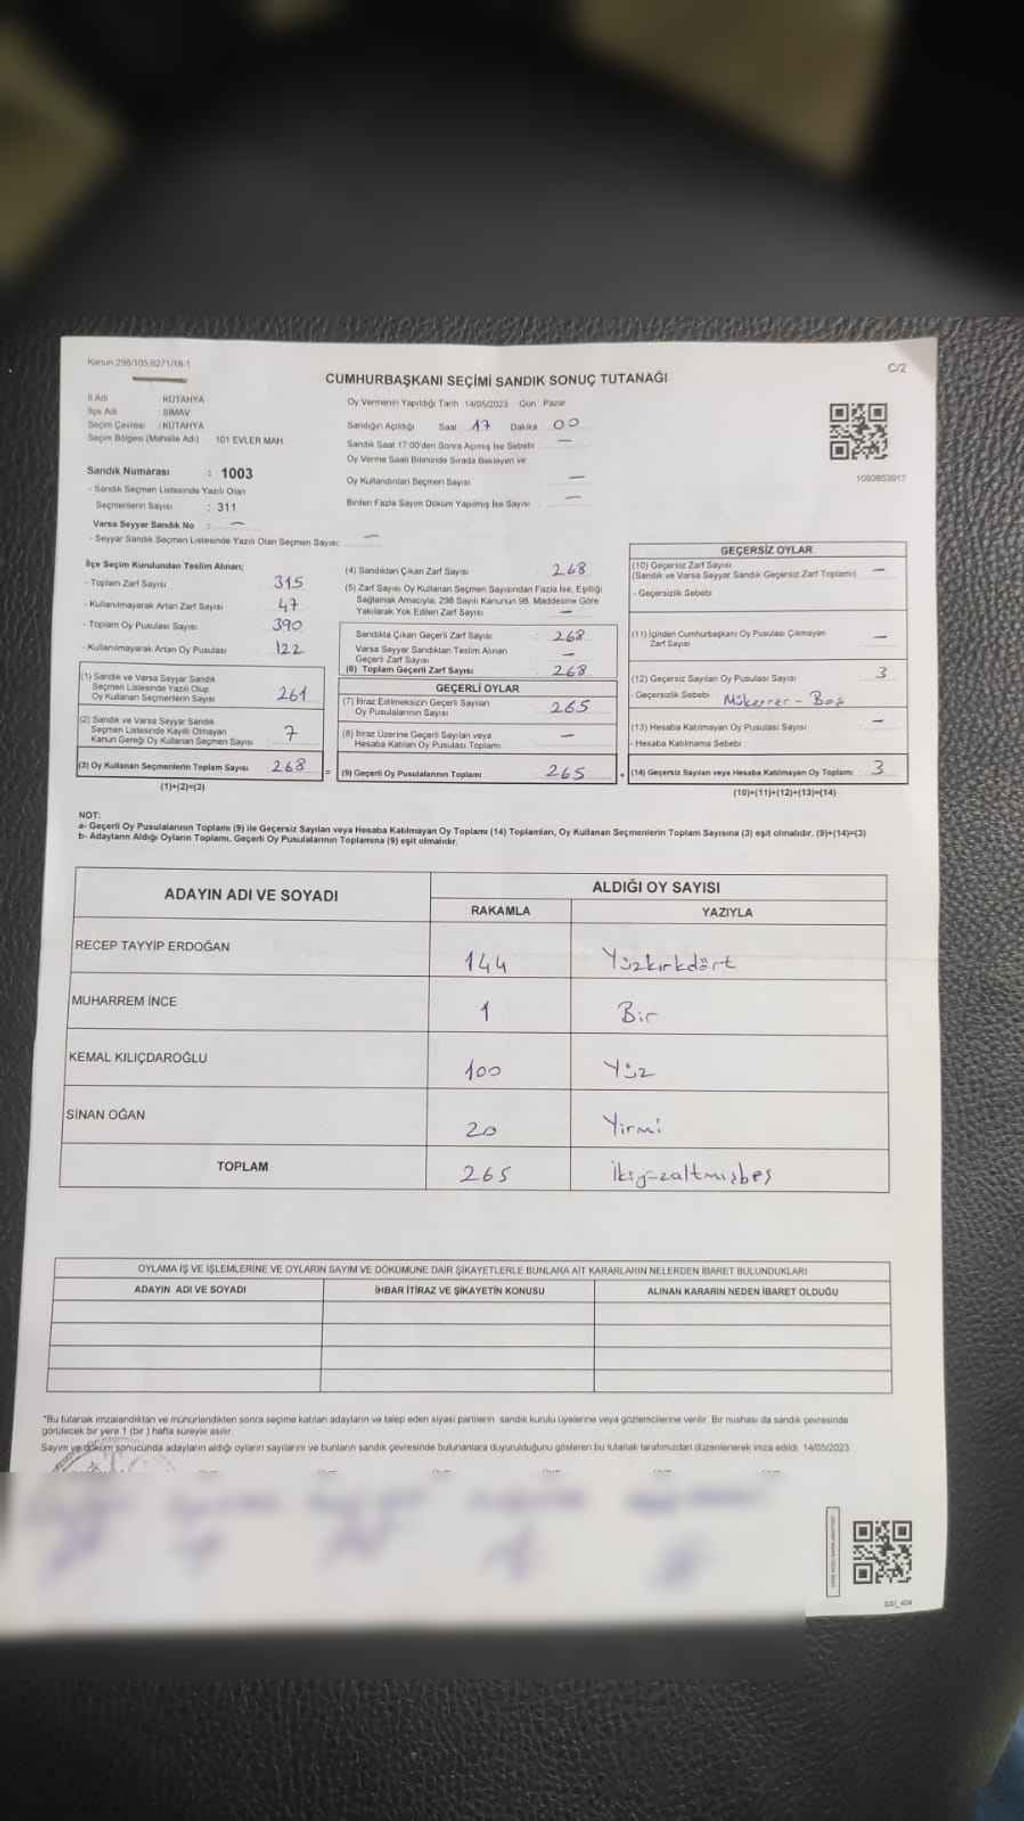 Kanun 298/105,6271/18-1
C/2
CUMHURBAŞKANI SEÇİMİ SANDIK SONUÇ TUTANAĞI
İl Adı : KÜTAHYA
İlçe Adı : SİMAV
Seçim Çevresi : KÜTAHYA
Seçim Bölgesi (Mahalle Adı) 101 EVLER MAH.
Sandık Numarası : 1003
- Sandık Seçmen Listesinde Yazılı Olan
Seçmenlerin Sayısı : 311
Varsa Seyyar Sandık No : —
- Seyyar Sandık Seçmen Listesinde Yazılı Olan Seçmen Sayısı: —
Oy Vermenin Yapıldığı Tarih 14/05/2023 Gün Pazar
Sandığın Açıldığı Saat 17 Dakika 00
Sandık Saat 17:00'den Sonra Açılmış İse Sebebi —
Oy Verme Saati Bitiminde Sırada Bekleyen ve
Oy Kullandırılan Seçmen Sayısı —
Birden Fazla Sayım Döküm Yapılmış İse Sayısı —
İlçe Seçim Kurulundan Teslim Alınan;
- Toplam Zarf Sayısı 315
- Kullanılmayarak Artan Zarf Sayısı 47
- Toplam Oy Pusulası Sayısı 390
- Kullanılmayarak Artan Oy Pusulası 122
(1) Sandık ve Varsa Seyyar Sandık
Seçmen Listesinde Yazılı Olup
Oy Kullanan Seçmenlerin Sayısı 261
(2) Sandık ve Varsa Seyyar Sandık
Seçmen Listesinde Kayıtlı Olmayan
Kanun Gereği Oy Kullanan Seçmen Sayısı 7
(3) Oy Kullanan Seçmenlerin Toplam Sayısı 268
(1)+(2)=(3)
(4) Sandıktan Çıkan Zarf Sayısı 268
(5) Zarf Sayısı Oy Kullanan Seçmen Sayısından Fazla İse, Eşitliği
Sağlamak Amacıyla, 298 Sayılı Kanunun 98. Maddesine Göre
Yakılarak Yok Edilen Zarf Sayısı —
Sandıkta Çıkan Geçerli Zarf Sayısı 268
Varsa Seyyar Sandıktan Teslim Alınan
Geçerli Zarf Sayısı —
(6) Toplam Geçerli Zarf Sayısı 268
GEÇERLİ OYLAR
(7) İtiraz Edilmeksizin Geçerli Sayılan
Oy Pusulalarının Sayısı 265
(8) İtiraz Üzerine Geçerli Sayılan veya
Hesaba Katılan Oy Pusulası Toplamı —
= (9) Geçerli Oy Pusulalarının Toplamı 265 +
GEÇERSİZ OYLAR
(10) Geçersiz Zarf Sayısı
(Sandık ve Varsa Seyyar Sandık Geçersiz Zarf Toplamı) —
- Geçersizlik Sebebi
(11) İçinden Cumhurbaşkanı Oy Pusulası Çıkmayan
Zarf Sayısı —
(12) Geçersiz Sayılan Oy Pusulası Sayısı 3
- Geçersizlik Sebebi Mükerrer - Boş
(13) Hesaba Katılmayan Oy Pusulası Sayısı —
- Hesaba Katılmama Sebebi
(14) Geçersiz Sayılan veya Hesaba Katılmayan Oy Toplamı 3
(10)+(11)+(12)+(13)=(14)
NOT:
a- Geçerli Oy Pusulalarının Toplamı (9) ile Geçersiz Sayılan veya Hesaba Katılmayan Oy Toplamı (14) Toplamları, Oy Kullanan Seçmenlerin Toplam Sayısına (3) eşit olmalıdır. (9)+(14)=(3)
b- Adayların Aldığı Oyların Toplamı, Geçerli Oy Pusulalarının Toplamına (9) eşit olmalıdır.
ADAYIN ADI VE SOYADI
ALDIĞI OY SAYISI
RAKAMLA YAZIYLA
RECEP TAYYİP ERDOĞAN 144 Yüzkırkdört
MUHARREM İNCE 1 Bir
KEMAL KILIÇDAROĞLU 100 Yüz
SİNAN OĞAN 20 Yirmi
TOPLAM 265 İkiyüzaltmışbeş
OYLAMA İŞ VE İŞLEMLERİNE VE OYLARIN SAYIM VE DÖKÜMÜNE DAİR ŞİKAYETLERLE BUNLARA AİT KARARLARIN NELERDEN İBARET BULUNDUKLARI
ADAYIN ADI VE SOYADI İHBAR İTİRAZ VE ŞİKAYETİN KONUSU ALINAN KARARIN NEDEN İBARET OLDUĞU
*Bu tutanak imzalandıktan ve mühürlendikten sonra seçime katılan adayların ve talep eden siyasi partilerin sandık kurulu üyelerine veya gözlemcilerine verilir. Bir nüshası da sandık çevresinde
görülecek bir yere 1 (bir) hafta süreyle asılır.
Sayım ve döküm sonucunda adayların aldığı oyların sayılarını ve bunların sandık çevresinde bulunanlara duyurulduğunu gösteren bu tutanak tarafımızdan düzenlenerek imza edildi. 14/05/2023